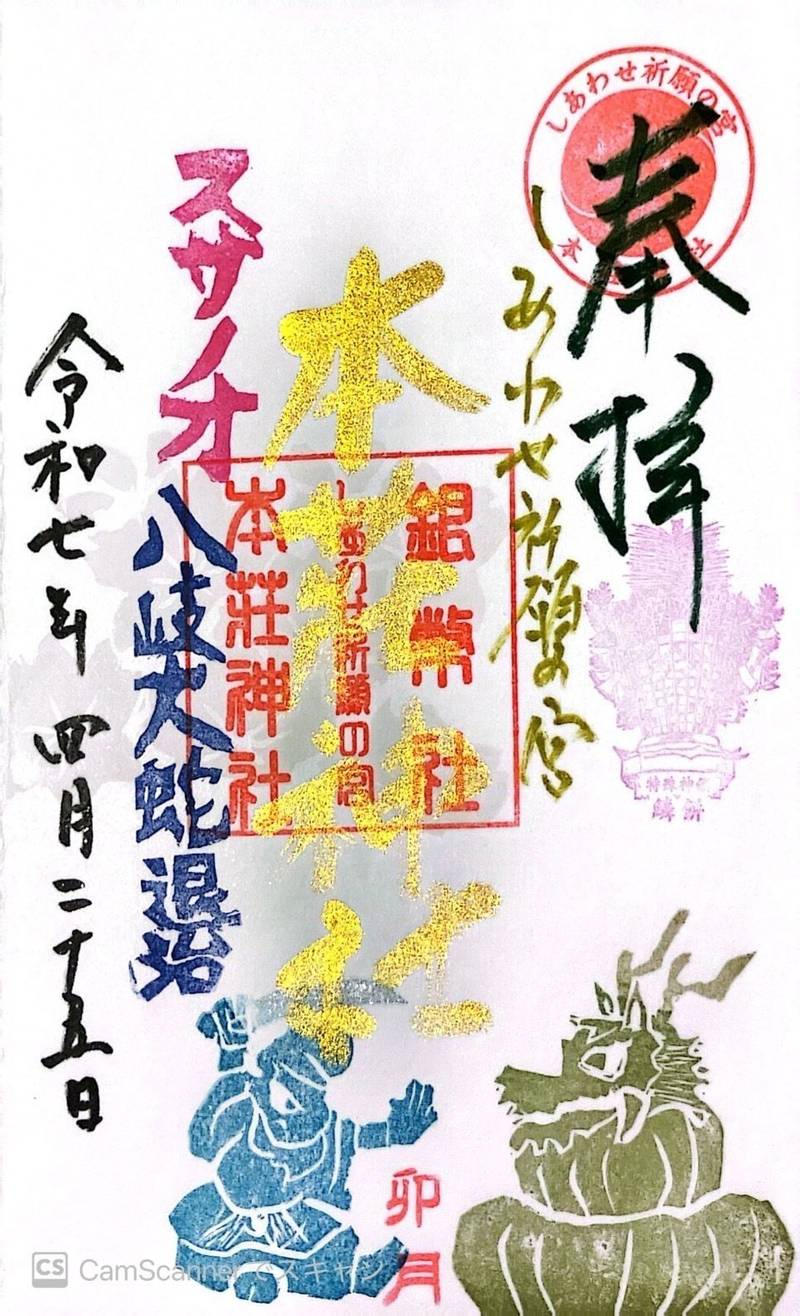 しあわせ祈願の宮
本
社
奉拝
しあわせ祈願の宮
特殊神
銀幣社
しあわせ祈願の宮
本荘神社
本荘神社
スサノオ
八岐大蛇退治
令和七年四月二十五日
卯月
CS CamScannerでスキャン